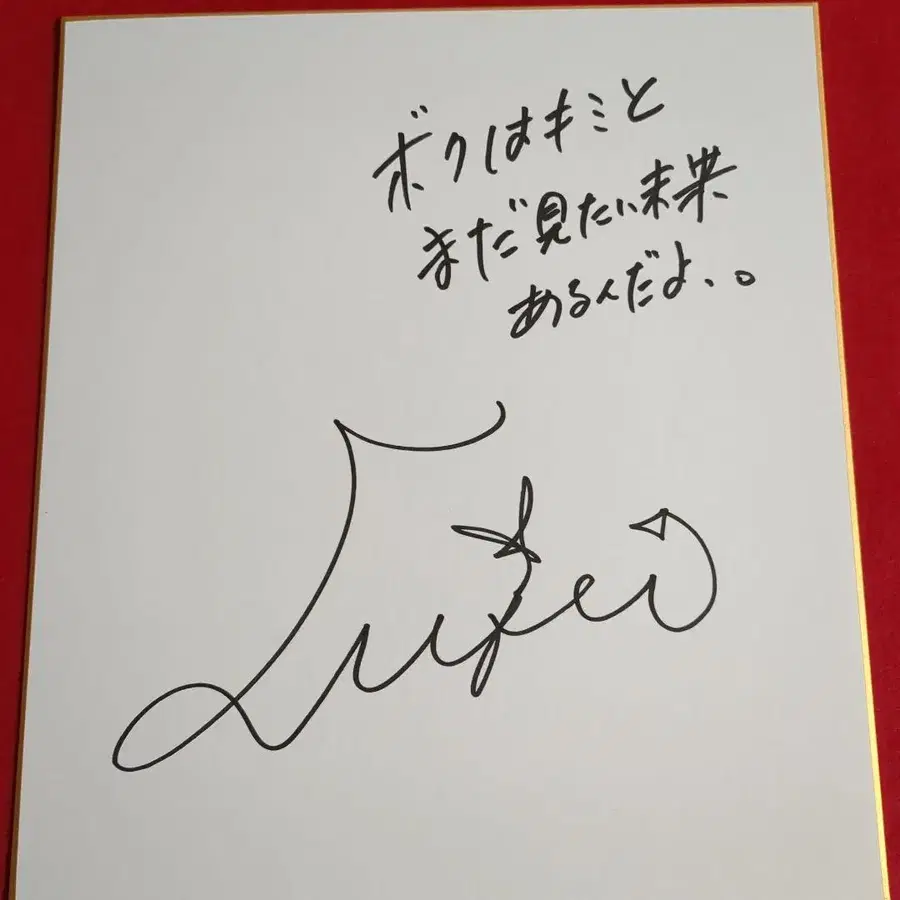 ボクはキミと
まだ見たい未来
あるんだよ、。